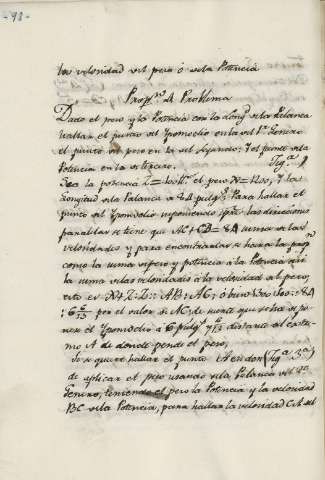 - 98 -
la velocidad del peso ó dela Potencia
Prop.n 4 Problema
Dado el peso y la Potencia con la Long.d dela Palanca
hallar el punto del Ypomodio en la del P.r Genero
el punto del peso en la del segundo: Y el punto dela
Potencia en la del tercero. Fig.a 1
Sea la potencia Z=100 el peso X=1200, Y la
longitud dela Palanca = 84 pulg.s Para hallar el
punto del Ypomodio suponiendo las direcciones
paralelas se tiene que AC+CB=84 suma delas
velocidades y para encontrarlas se hara la prop.n
como la suma del peso y potencia á la Potencia asi
la suma delas velocidades á la velocidad del peso,
esto es X+Z:Z::AB:AC, ó bien 1300:100::84
:6 6/13 por el valor de AC, de suerte que se ha de po-
ner el Ypomodio á 6 pulg.s 6/13 distante del extre-
mo A de donde pende el peso,
Si se quiere hallar el punto A en don (Fig.a 3.a)
de aplicar el peso usando dela Palanca del 2.o
Genero, teniendo el peso la Potencia y la velocidad
BC dela Potencia, para hallar la velocidad CA del